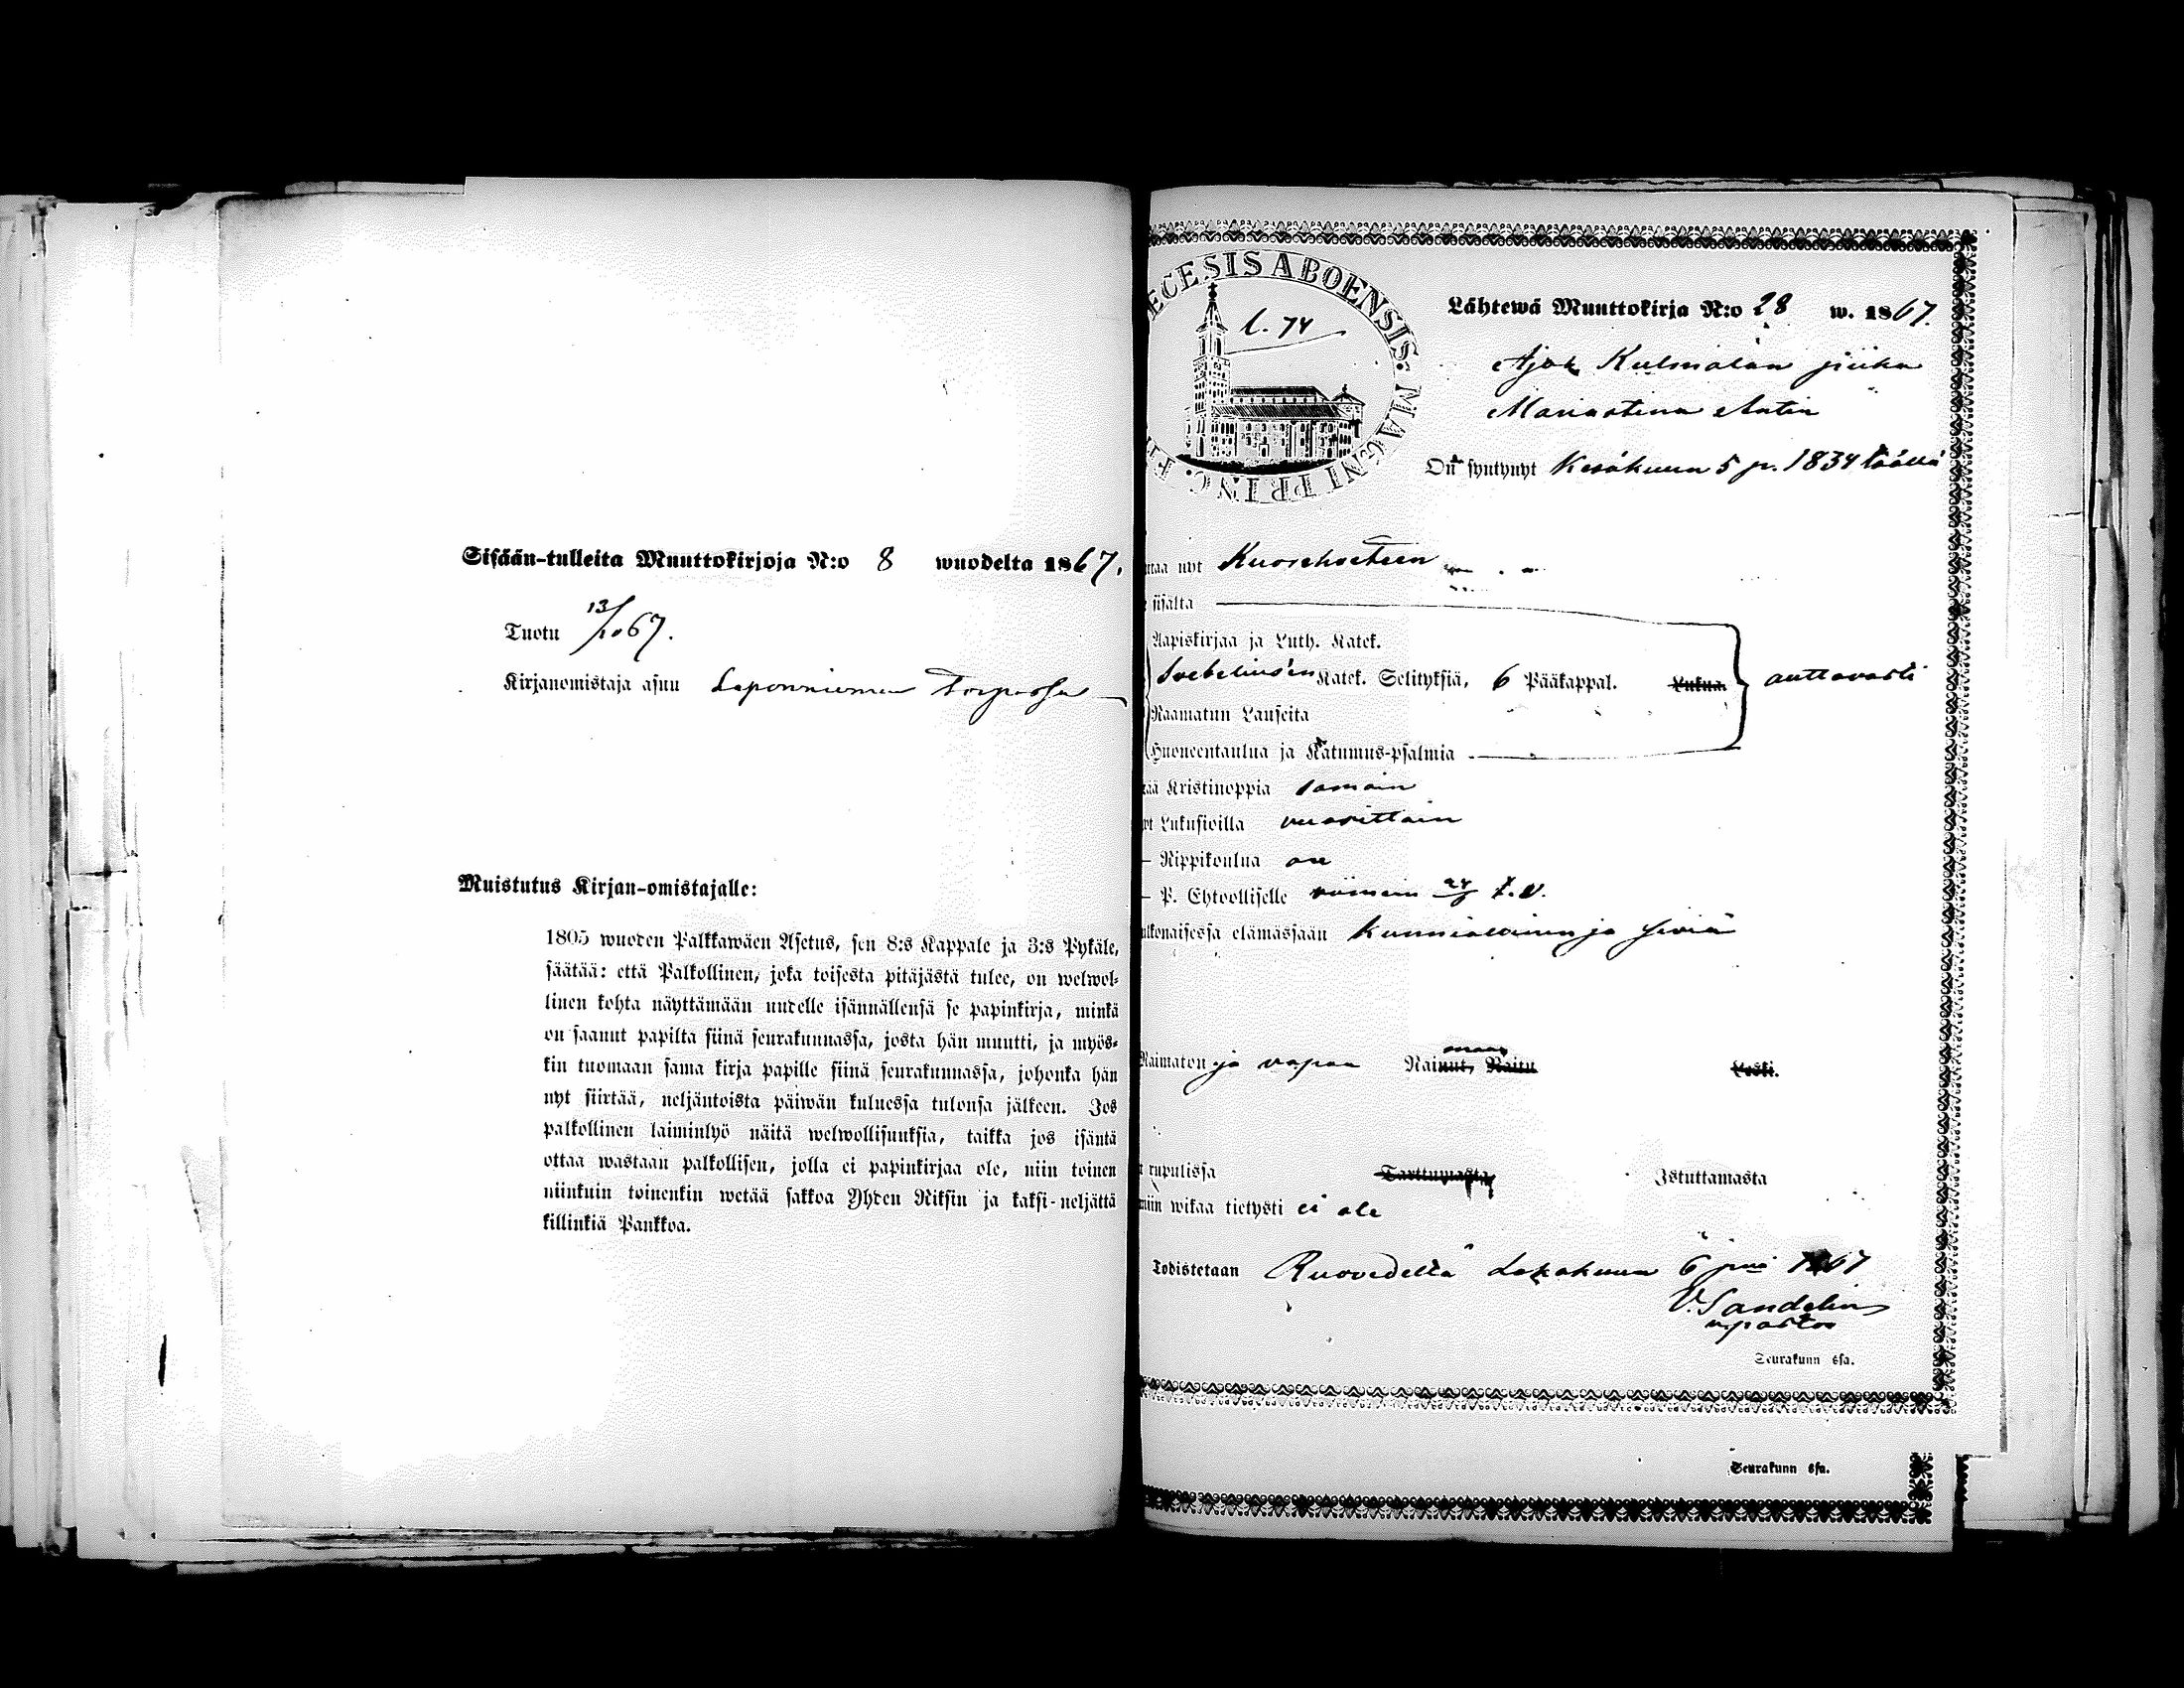 Sisään-tulleita Muuttokirjoja N:o 8 wuodelta 1867.
Tuotu 13/10 67.
Kirjanomistaja asuu Laponniemen Torpassa
Muistutus Kirjan-omistajalle:
1805 wuoden Palkkawäen Asetus, sen 8:s Kappale ja 3:s Pykäle,
säätää: että Palkollinen, joka toisesta pitäjästä tulee, on welwol-
linen kohta näyttämään uudelle isännällensä se papinkirja, minkä
on saanut papilta siinä seurakunnassa, josta hän muutti, ja myös-
kin tuomaan sama kirja papille siinä seurakunnassa, johonka hän
nyt siirtää, neljäntoista päiwän kuluessa tulonsa jälkeen. Jos
palkollinen laiminlyö näitä welwollisuuksia, taikka jos isäntä
ottaa wastaan palkollisen, jolla ei papinkirjaa ole, niin toinen
niinkuin toinenkin wetää sakkoa Yhden Riksin ja kaksi-neljättä
killinkiä Pankkoa.
ECESIS ABOENSIS. MAGNI PRINC. FI
l. 74
Lähtewä Muuttokirja N:o 28 w. 1867.
Kulmalan piika
Mariastina Antin
On syntynyt Kesäkuun 5 p. 1834 täällä
taa nyt
sisältä
Aapiskirjaa ja Luth. Katek.
Svebeliusen Katek. Selityksiä, 6 Pääkappal. Lukua. auttavasti
Raamatun Lauseita
Huoneentaulua ja Katumus-psalmia
tää Kristinoppia samoin
yt Lukusioilla vuosittain
– Rippikoulua on
– P. Ehtoolliselle viimein t.v.
ulkonaisessa elämässään kunniallinen ja siviä
Naimaton ja vapaa Nainut, Naitu Leski.
t rupulissa Tarttumasta Istuttamasta
miin wikaa tietysti ei ole
Todistetaan Ruovedellä Lokakuun 6 pnä 1867
V. Sandelin
v. pastor
Seurakunn ssa.
Seurakunn ssa.